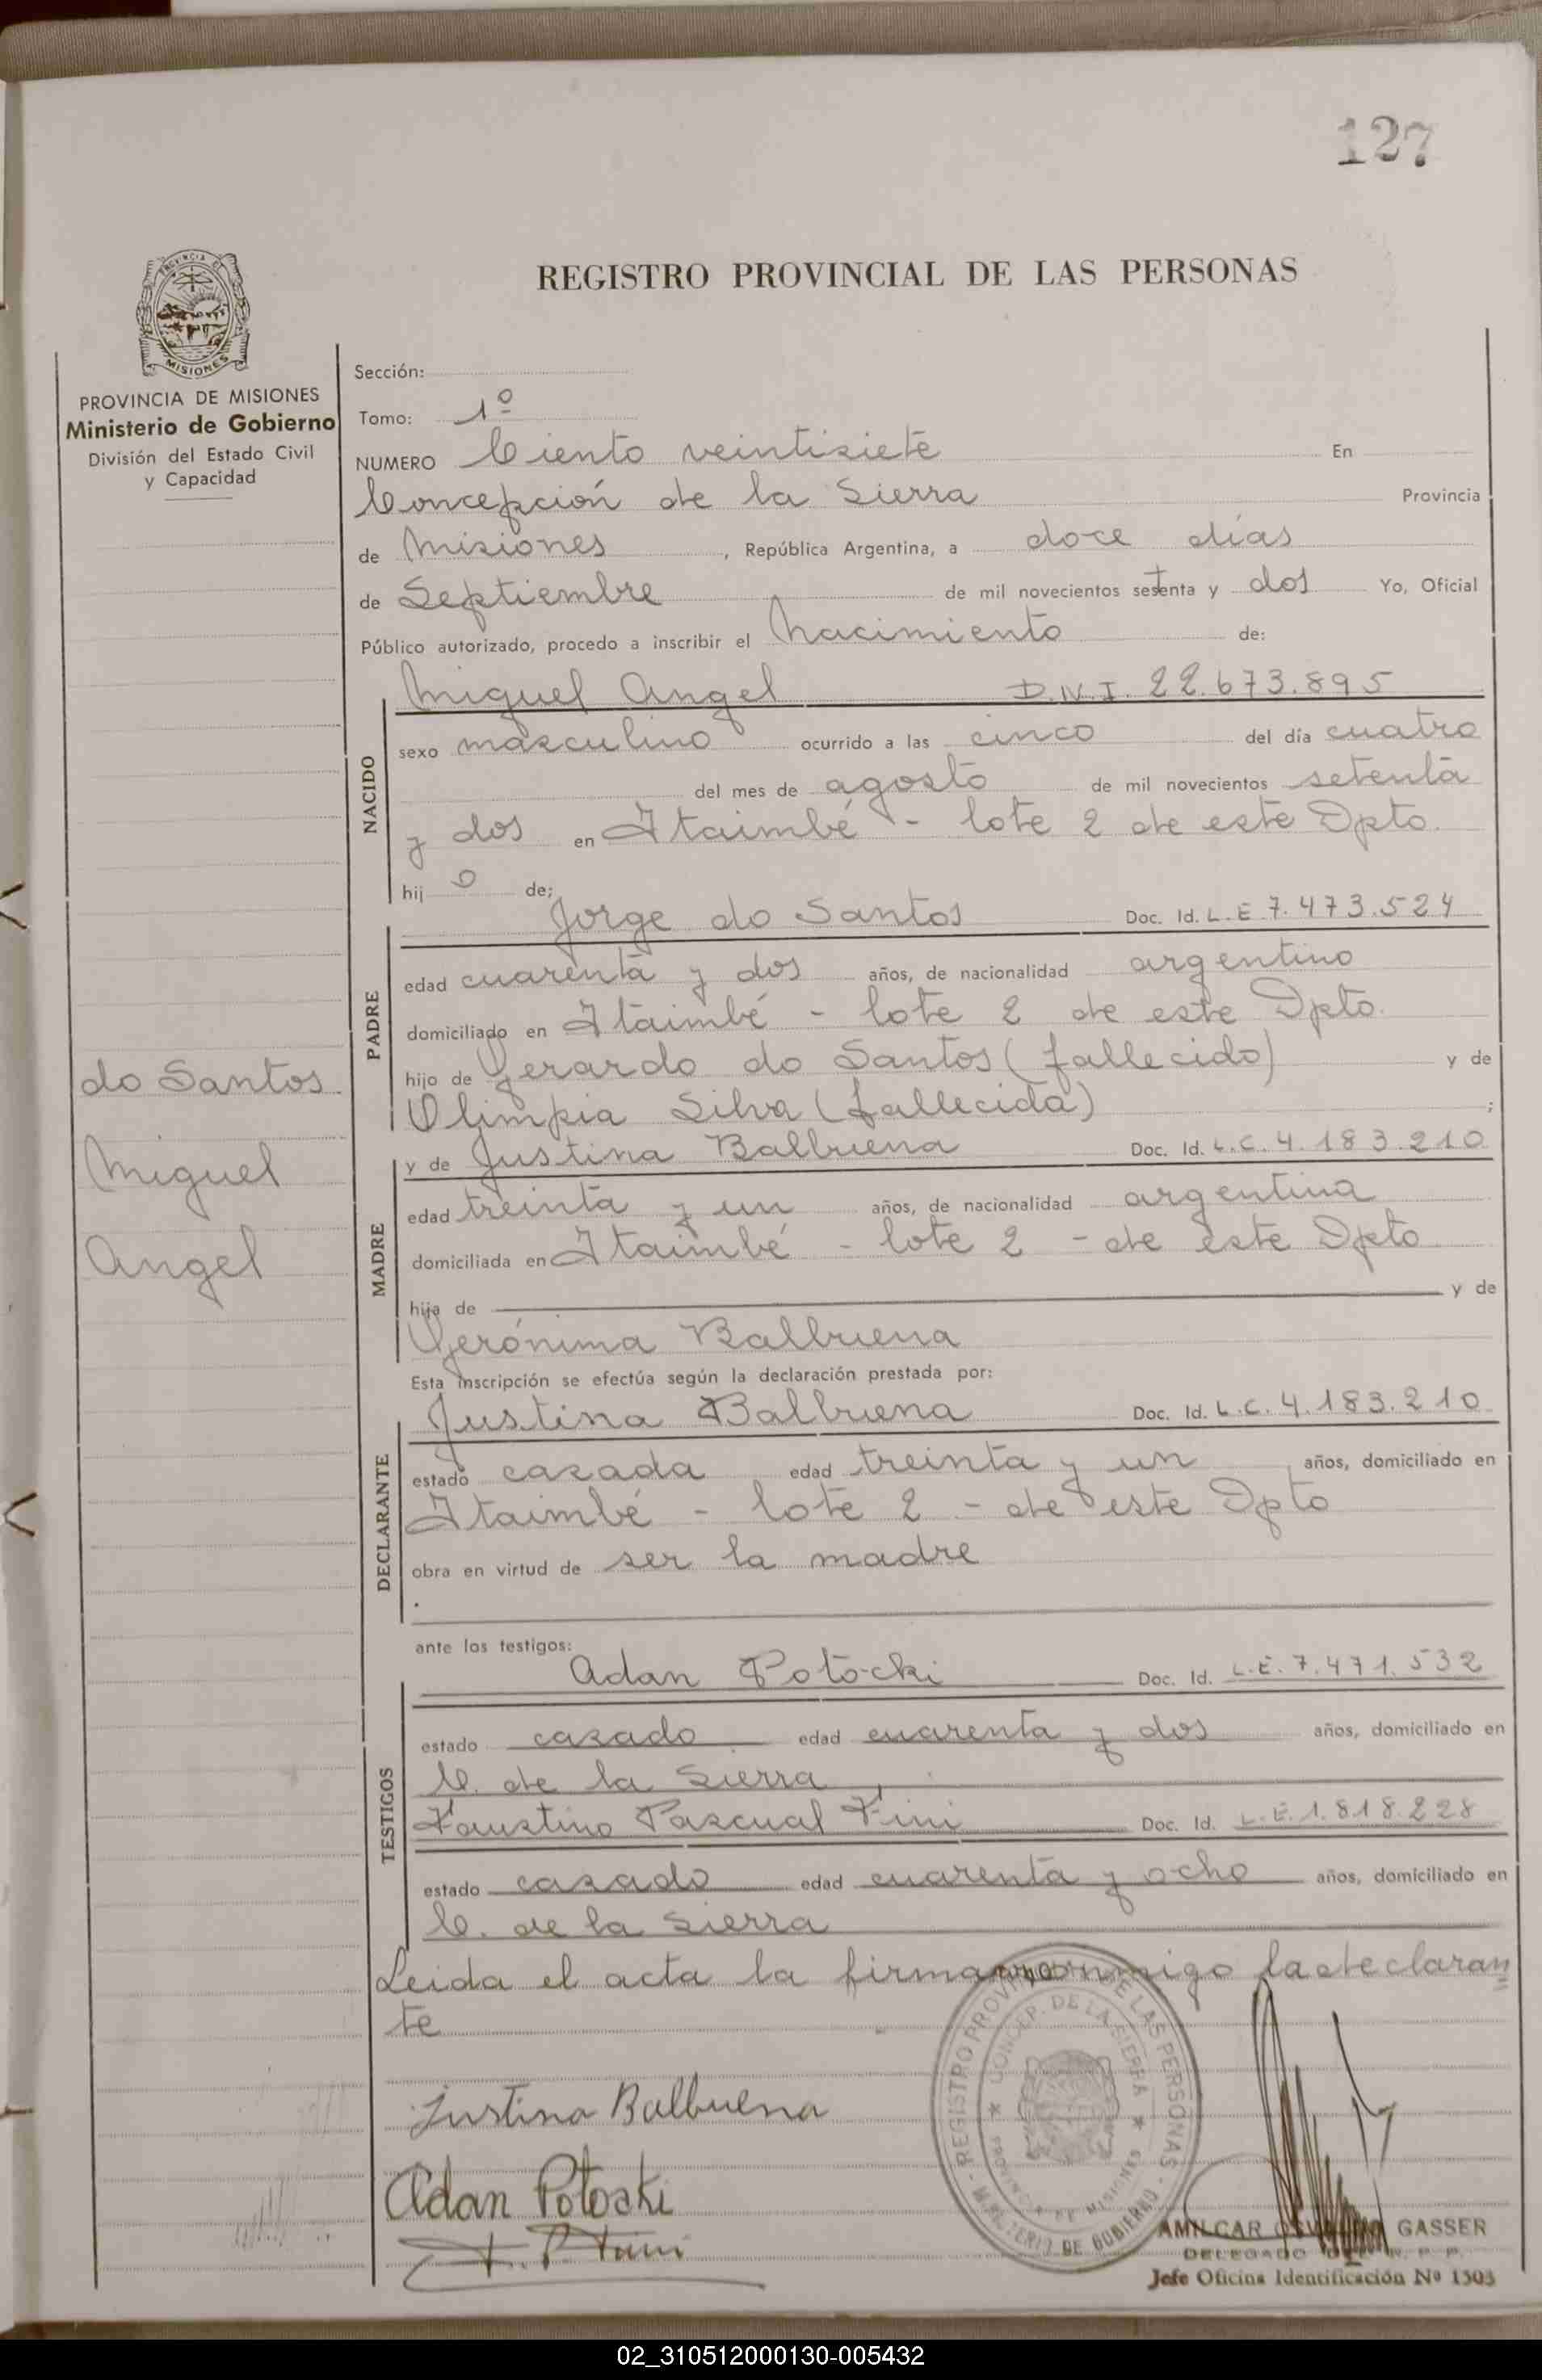 127
REGISTRO PROVINCIAL DE LAS PERSONAS
PROVINCIA DE MISIONES
Ministerio de Gobierno
División del Estado Civil
y Capacidad
Sección:
Tomo: 1º
NUMERO Ciento veintisiete En
Concepción de la Sierra Provincia
de Misiones, República Argentina, a doce días
de Septiembre de mil novecientos setenta y dos Yo, Oficial
Público autorizado, procedo a inscribir el Nacimiento de:
Miguel Angel D.N.I. 22.673.895
NACIDO
sexo masculino ocurrido a las cinco del día cuatro
del mes de agosto de mil novecientos setenta
y dos en Itaimbé - lote 2 de este Dpto.
hijo de:
Jorge do Santos Doc. Id. L.E 7.473.524
PADRE
edad cuarenta y dos años, de nacionalidad argentino
domiciliado en Itaimbé - lote 2 de este Dpto.
hijo de Gerardo do Santos (fallecido) y de
Olimpia Silva (fallecida) ;
y de Justina Balbuena Doc. Id. L.C. 4.183.210
MADRE
edad treinta y un años, de nacionalidad argentina
domiciliada en Itaimbé - lote 2 - de este Dpto
hija de y de
Gerónima Balbuena
Esta inscripción se efectúa según la declaración prestada por:
Justina Balbuena Doc. Id. L.C. 4.183.210
DECLARANTE
estado casada edad treinta y un años, domiciliado en
Itaimbé - lote 2 - de este Dpto
obra en virtud de ser la madre
ante los testigos:
Adan Potocki Doc. Id. L.E. 7.471.532
TESTIGOS
estado casado edad cuarenta y dos años, domiciliado en
C. de la Sierra
Faustino Pascual Fini Doc. Id. L.E. 1.818.228
estado casado edad cuarenta y ocho años, domiciliado en
C. de la Sierra
Leida el acta la firman conmigo la declaran
te
do Santos
Miguel
Angel
Justina Balbuena
Adan Potocki
F. P. Fini
REGISTRO PROVINCIAL DE LAS PERSONAS - MINISTERIO DE GOBIERNO -
CONCEP. DE LA SIERRA * PROVINCIA DE MISIONES *
AMILCAR OSVALDO GASSER
DELEGADO DEL R. P. P.
Jefe Oficina Identificación Nº 1303
02_310512000130-005432